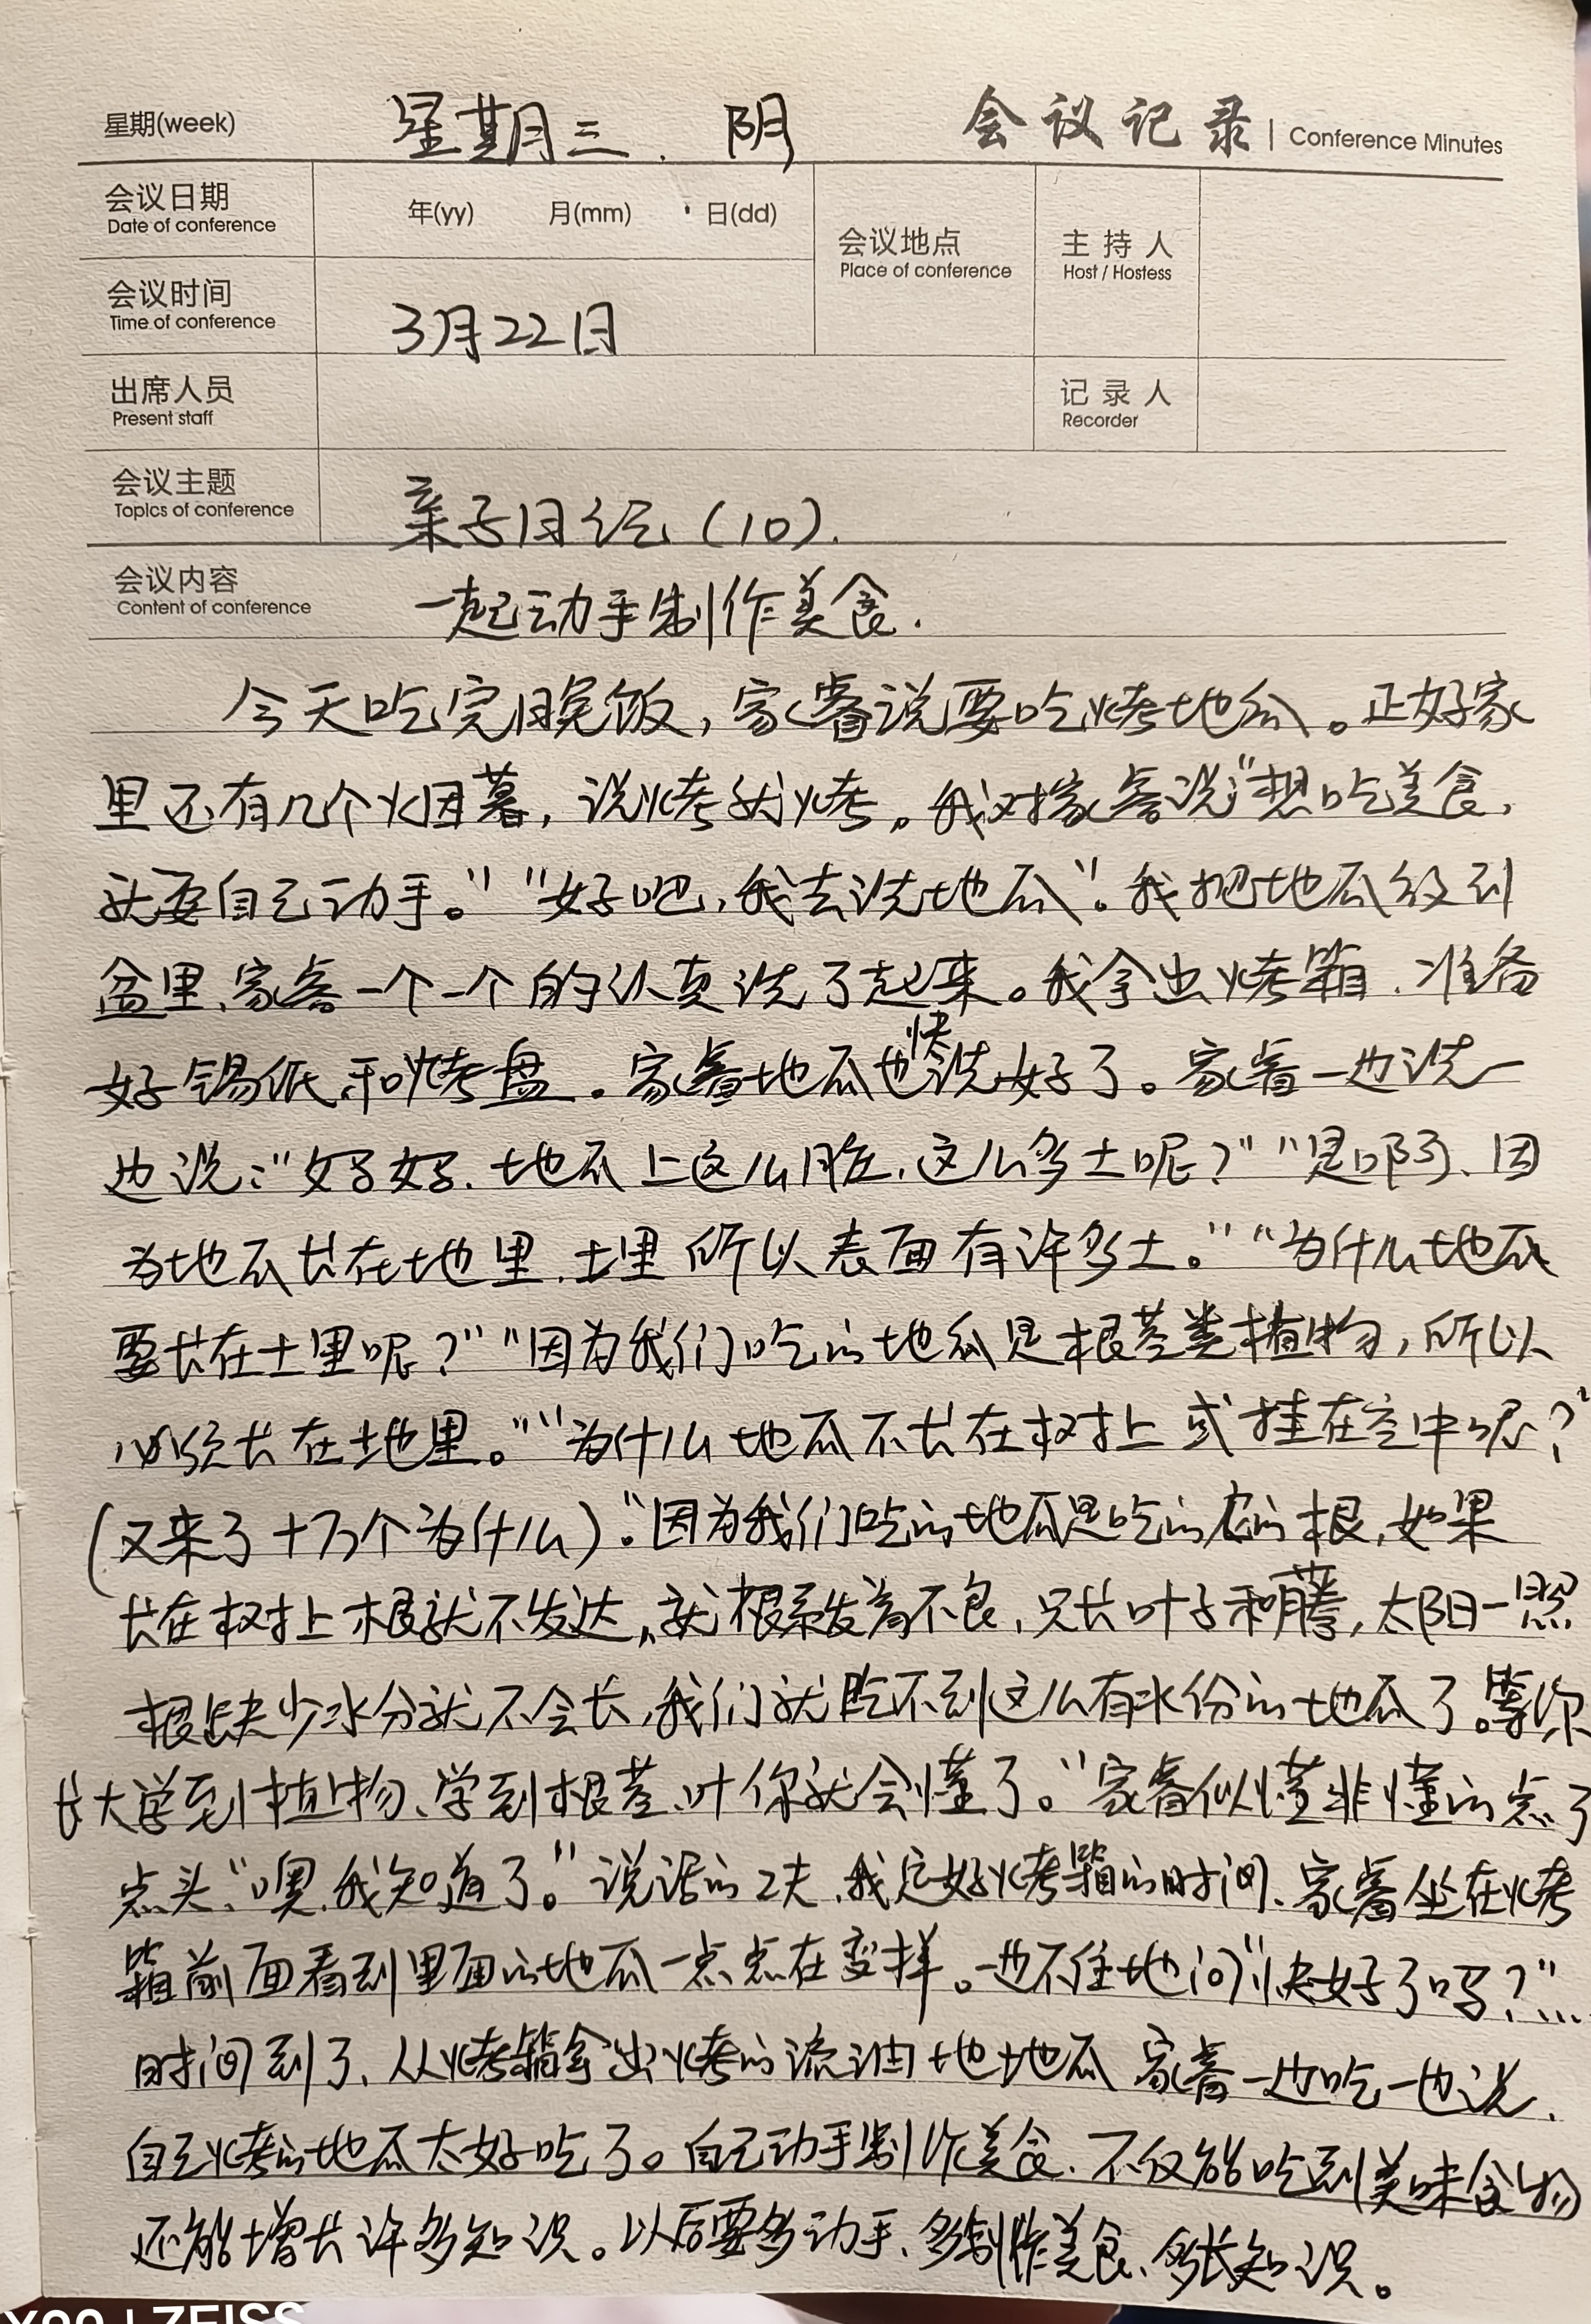 星期(week) 星期三. 阴 会议记录 | Conference Minutes
会议日期 年(yy) 月(mm) 日(dd) 会议地点 主持人
Date of conference Place of conference Host / Hostess
会议时间 3月22日
Time of conference
出席人员 记录人
Present staff Recorder
会议主题 亲子日记(10).
Topics of conference
会议内容 一起动手制作美食.
Content of conference
今天吃完晚饭,家睿说要吃烤地瓜。正好家
里还有几个烟薯,说烤就烤。我对家睿说“想吃美食,
就要自己动手。”“好吧,我去洗地瓜”。我把地瓜放到
盆里、家睿一个一个的认真洗了起来。我拿出烤箱、准备
好锡纸和烤盘。家睿地瓜也快洗好了。家睿一边洗一
边说:“好好、地瓜上这么脏、这么多土呢?”“是啊、因
为地瓜长在地里、土里所以表面有许多土。”“为什么地瓜
要长在土里呢?”“因为我们吃的地瓜是根茎类植物,所以
必须长在地里。”“为什么地瓜不长在树上或挂在空中呢?”
(又来了十万个为什么)“因为我们吃的地瓜是吃的它的根,如果
长在树上根就不发达,就根系发育不良,只长叶子和藤,太阳一照
根缺少水分就不会长,我们就吃不到这么有水份的地瓜了。等你
长大学到植物、学到根茎、叶你就会懂了。”家睿似懂非懂的点了
点头“噢、我知道了。”说话的工夫、我定好烤箱的时间、家睿坐在烤
箱前面看到里面的地瓜一点点在变样。也不住地问“快好了吗?”...
时间到了、从烤箱拿出烤的流油地地瓜 家睿一边吃一边说、
自己烤的地瓜太好吃了。自己动手制作美食、不仅能吃到美味食物
还能增长许多知识。以后要多动手、多制作美食、多长知识。
ZEISS